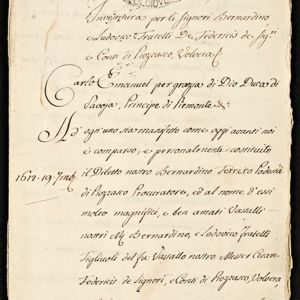 Investitura per li Signori Bernardino
e Ludovico Fratelli De Federicis de Sig.ri
e Conti di Piozzasco, Volvera
Carlo Emanuel per grazia di Dio Duca di
Savoja, Principe di Piemonte &c.
Ad ogni uno sia manifesto come oggi avanti noi
è comparso, e personalmente costituito
il Diletto nostro Bernardino Podestà
1612-19-7mb.
di Piozzasco Procuratore, ed al nome d'essi
molto magnifici, e ben amati Vassalli
nostri MM. Bernardino, e Lodovico fratelli
figliuoli del fu Vassallo nostro Messer Cesare
Federicis de Signori, e Conti di Piozzasco, Volvera